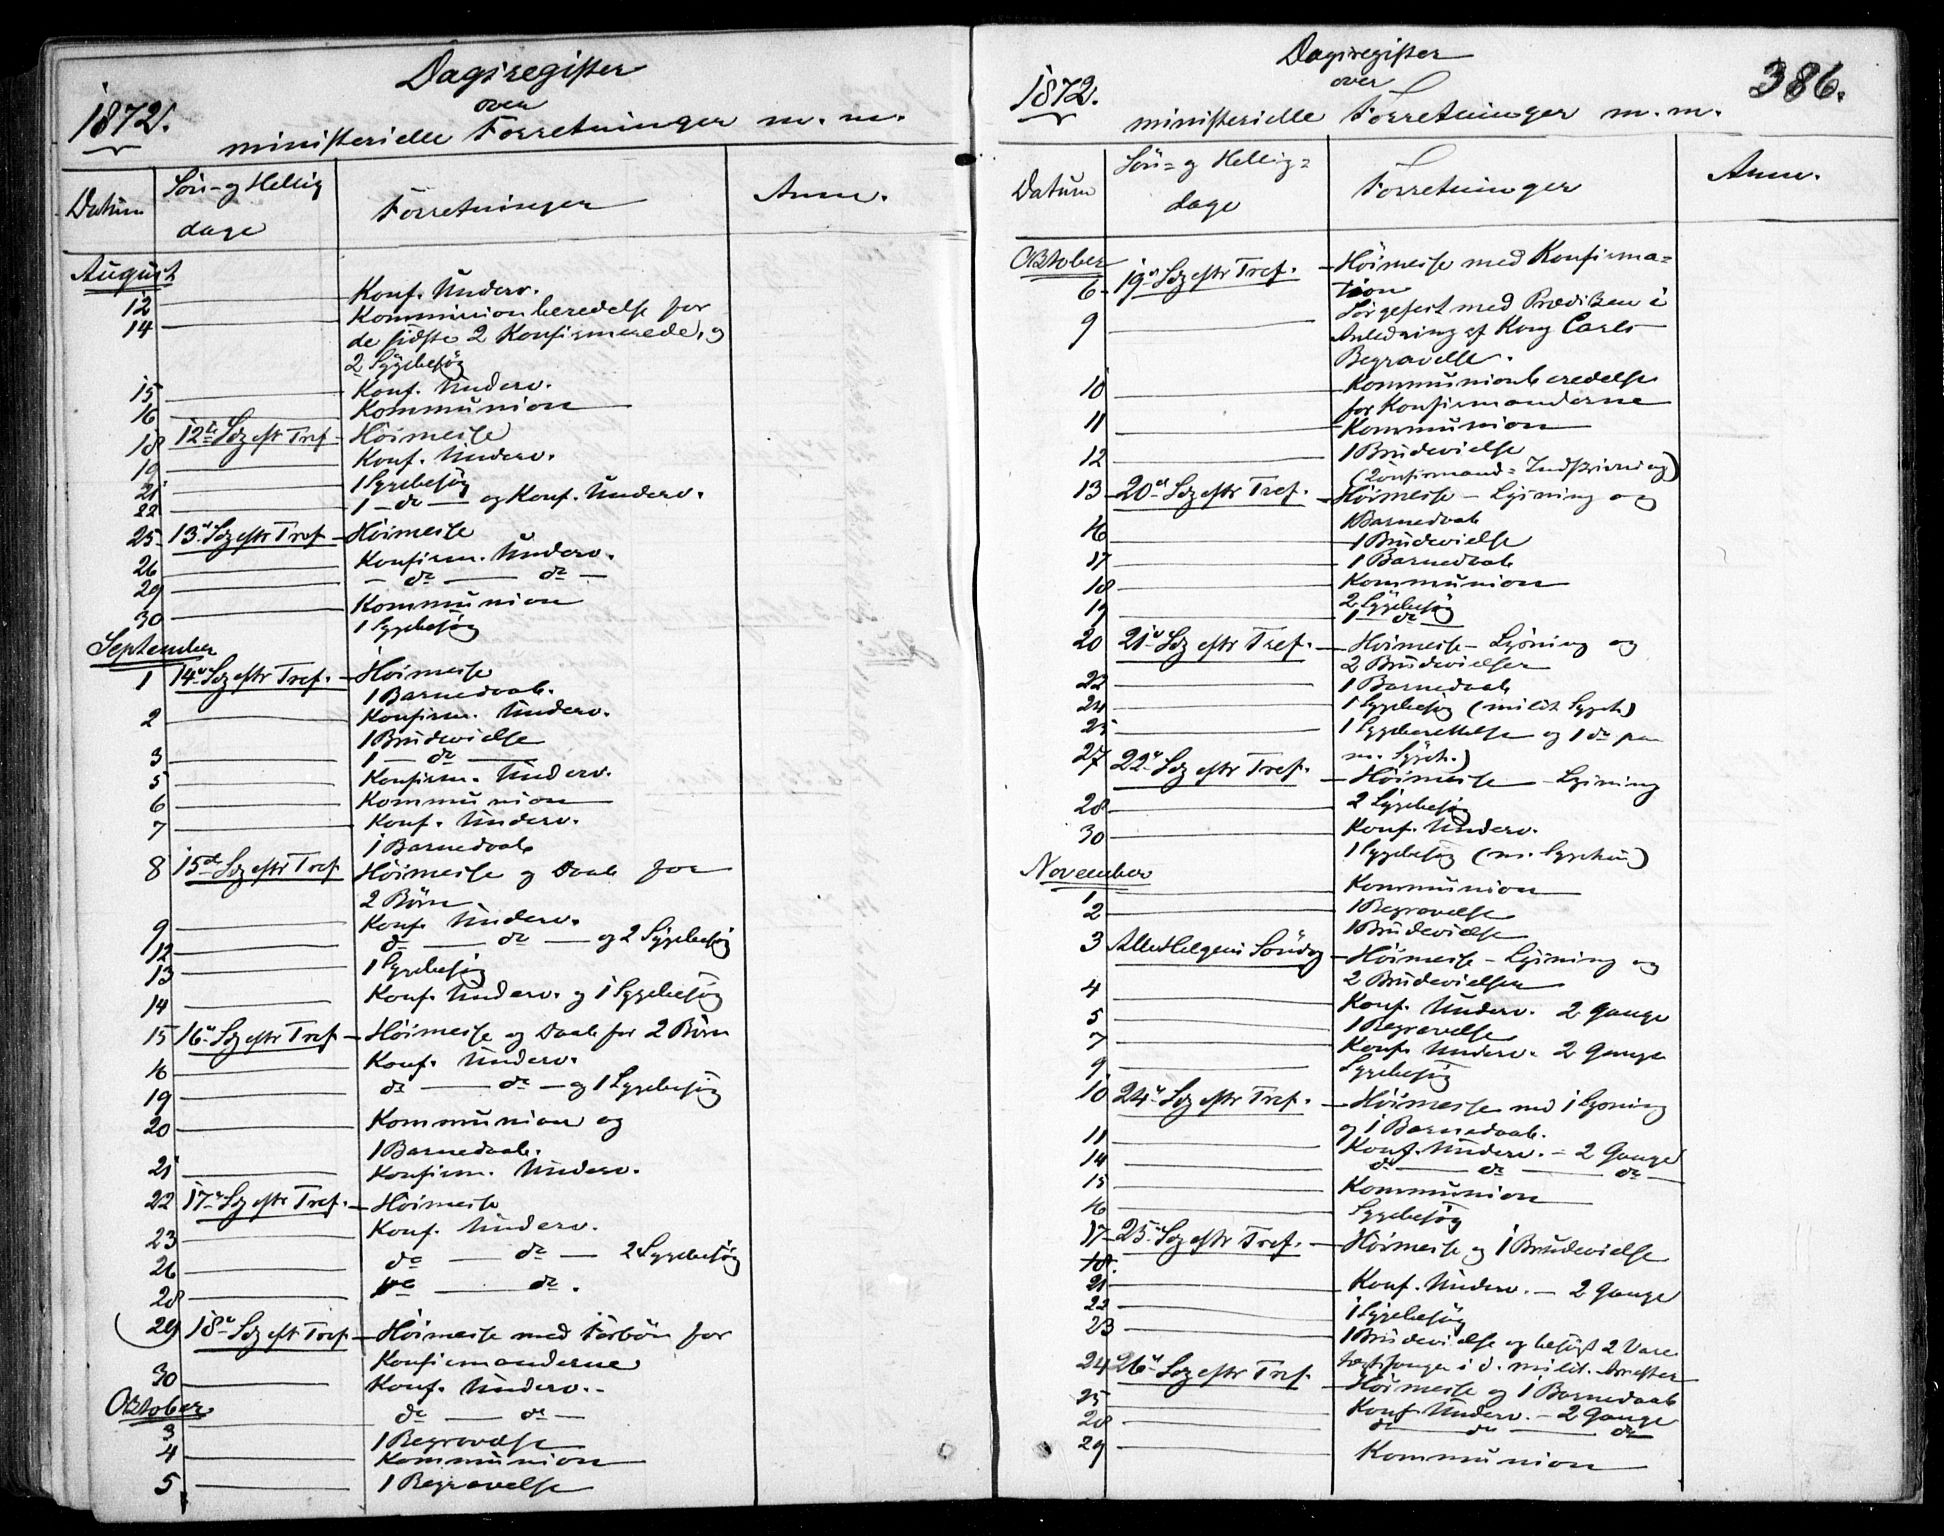 Dagsregister
over
1872.
ministerielle Forretninger m. m.
Datum Søn- og Hellig Forretninger Anm.
dage
August
12 Konf. Underv.
14 Kommunionberedelse for
de sidste 2 Konfirmerede, og
2 Sygebesøg
15 Konf. Underv.
16 Kommunion
18 12te Sdg eft Tref. Høimesse
19 Konf. Underv.
21 1 Sygebesøg
22 1 do og Konf. Underv.
25 13de Sdg eftr Tref Høimesse
26 Konfirm. Underv.
29 do do
30 Kommunion
1 Sygebesøg
September
1 14de Sdg eftr Tref. Høimesse
1 Barnedaab.
2 Konfirm. Underv.
1 Brudevielse
3 1 do
5 Konfirm. Underv.
6 Kommunion
7 Konf. Underv.
1 Barnedaab
8 15de Sdg eftr Tref Høimesse og Daab for
2 Børn
9 Konf. Underv.
12 do do og 2 Sygebesøg
13 1 Sygebesøg
14 Konf. Underv. og 1 Sygebesøg
15 16de Sdg eftr Tref Høimesse og Daab for 2 Børn
16 Konf. Underv.
19 do do og 1 Sygebesøg
20 Kommunion og
1 Barnedaab.
21 Konfirm. Underv.
22 17de Sdg eftr Tref. Høimesse
23 Konf. Underv.
26 do do 2 Sygebesøg
28 do do.
29 18de Sdg eft Tref Høimesse med Forbøn for
Konfirmanderne
30 Konf. Underv.
Oktober
do do
3 1 Begravelse
4 Kommunion
5 1 Begravelse
Dagsregister
over
1872.
386.
ministerielle Forretninger m. m.
Datum Søn- og Hellig- Forretninger Anm.
dage
Oktober
6 19de Sdg eftr Tref. Høimesse med Konfirma-
tion
9 Sørgefest med Prædiken i
Anledning af Kong Carls
Begravelse.
10 Kommunionberedelse
for Konfirmanderne
11 Kommunion
12 1 Brudevielse
(Konfirmand-Indskrivning)
13 20de Sdg eftr Tref. Høimesse - Lysning og
1 Barnedaab
16 1 Brudevielse
17 1 Barnedaab
18 Kommunion
19 2 Sygebesøg
1 do
20 21de Sdg eftr Tref. Høimesse - Lysning og
2 Brudevielser
22 1 Barnedaab
24 1 Sygebesøg (milit Sygeh)
25 1 Sygeberettelse og 1 do paa
m. Sygeh.)
27 22de Sdg eftr Tref. Høimesse - Lysning
28 2 Sygebesøg
30 Konf. Underv.
1 Sygebesøg (m. Sygehus)
November
1 Kommunion
2 1 Begravelse
1 Brudevielse
3 Alle Helgens Søndag Høimesse - Lysning og
2 Brudevielser
4 Konf. Underv. 2 Gange
5 1 Begravelse
7 Konf. Underv. 2 Gange
9 Sygebesøg
10 24de Sdg eftr Tref. Høimesse med 1 Lysning
og 1 Barnedaab.
11 Konf. Underv. - 2 Gange
14 do do do
15 Kommunion
16 Sygebesøg
17 25de Sdg eftr Tref. Høimesse og 1 Brudevielse
18.
21 Konf. Underv. - 2 Gange
22 1 Sygebesøg
23 1 Brudevielse og besøgt 2 Vare
tægtsfanger i d. milit. Arrester
24 26de Sdg eftr Tref. Høimesse og 1 Barnedaab
25 Konf Underv. - 2 Gange
28 do do do
29 Kommunion